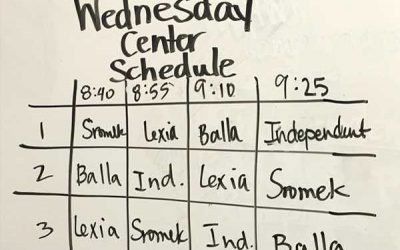 Wednesday
Center
Schedule
8:40 8:55 9:10 9:25
1 Sromek Lexia Balla Independent
2 Balla Ind. Lexia Sromek
3 Lexia Sromek Ind. Balla